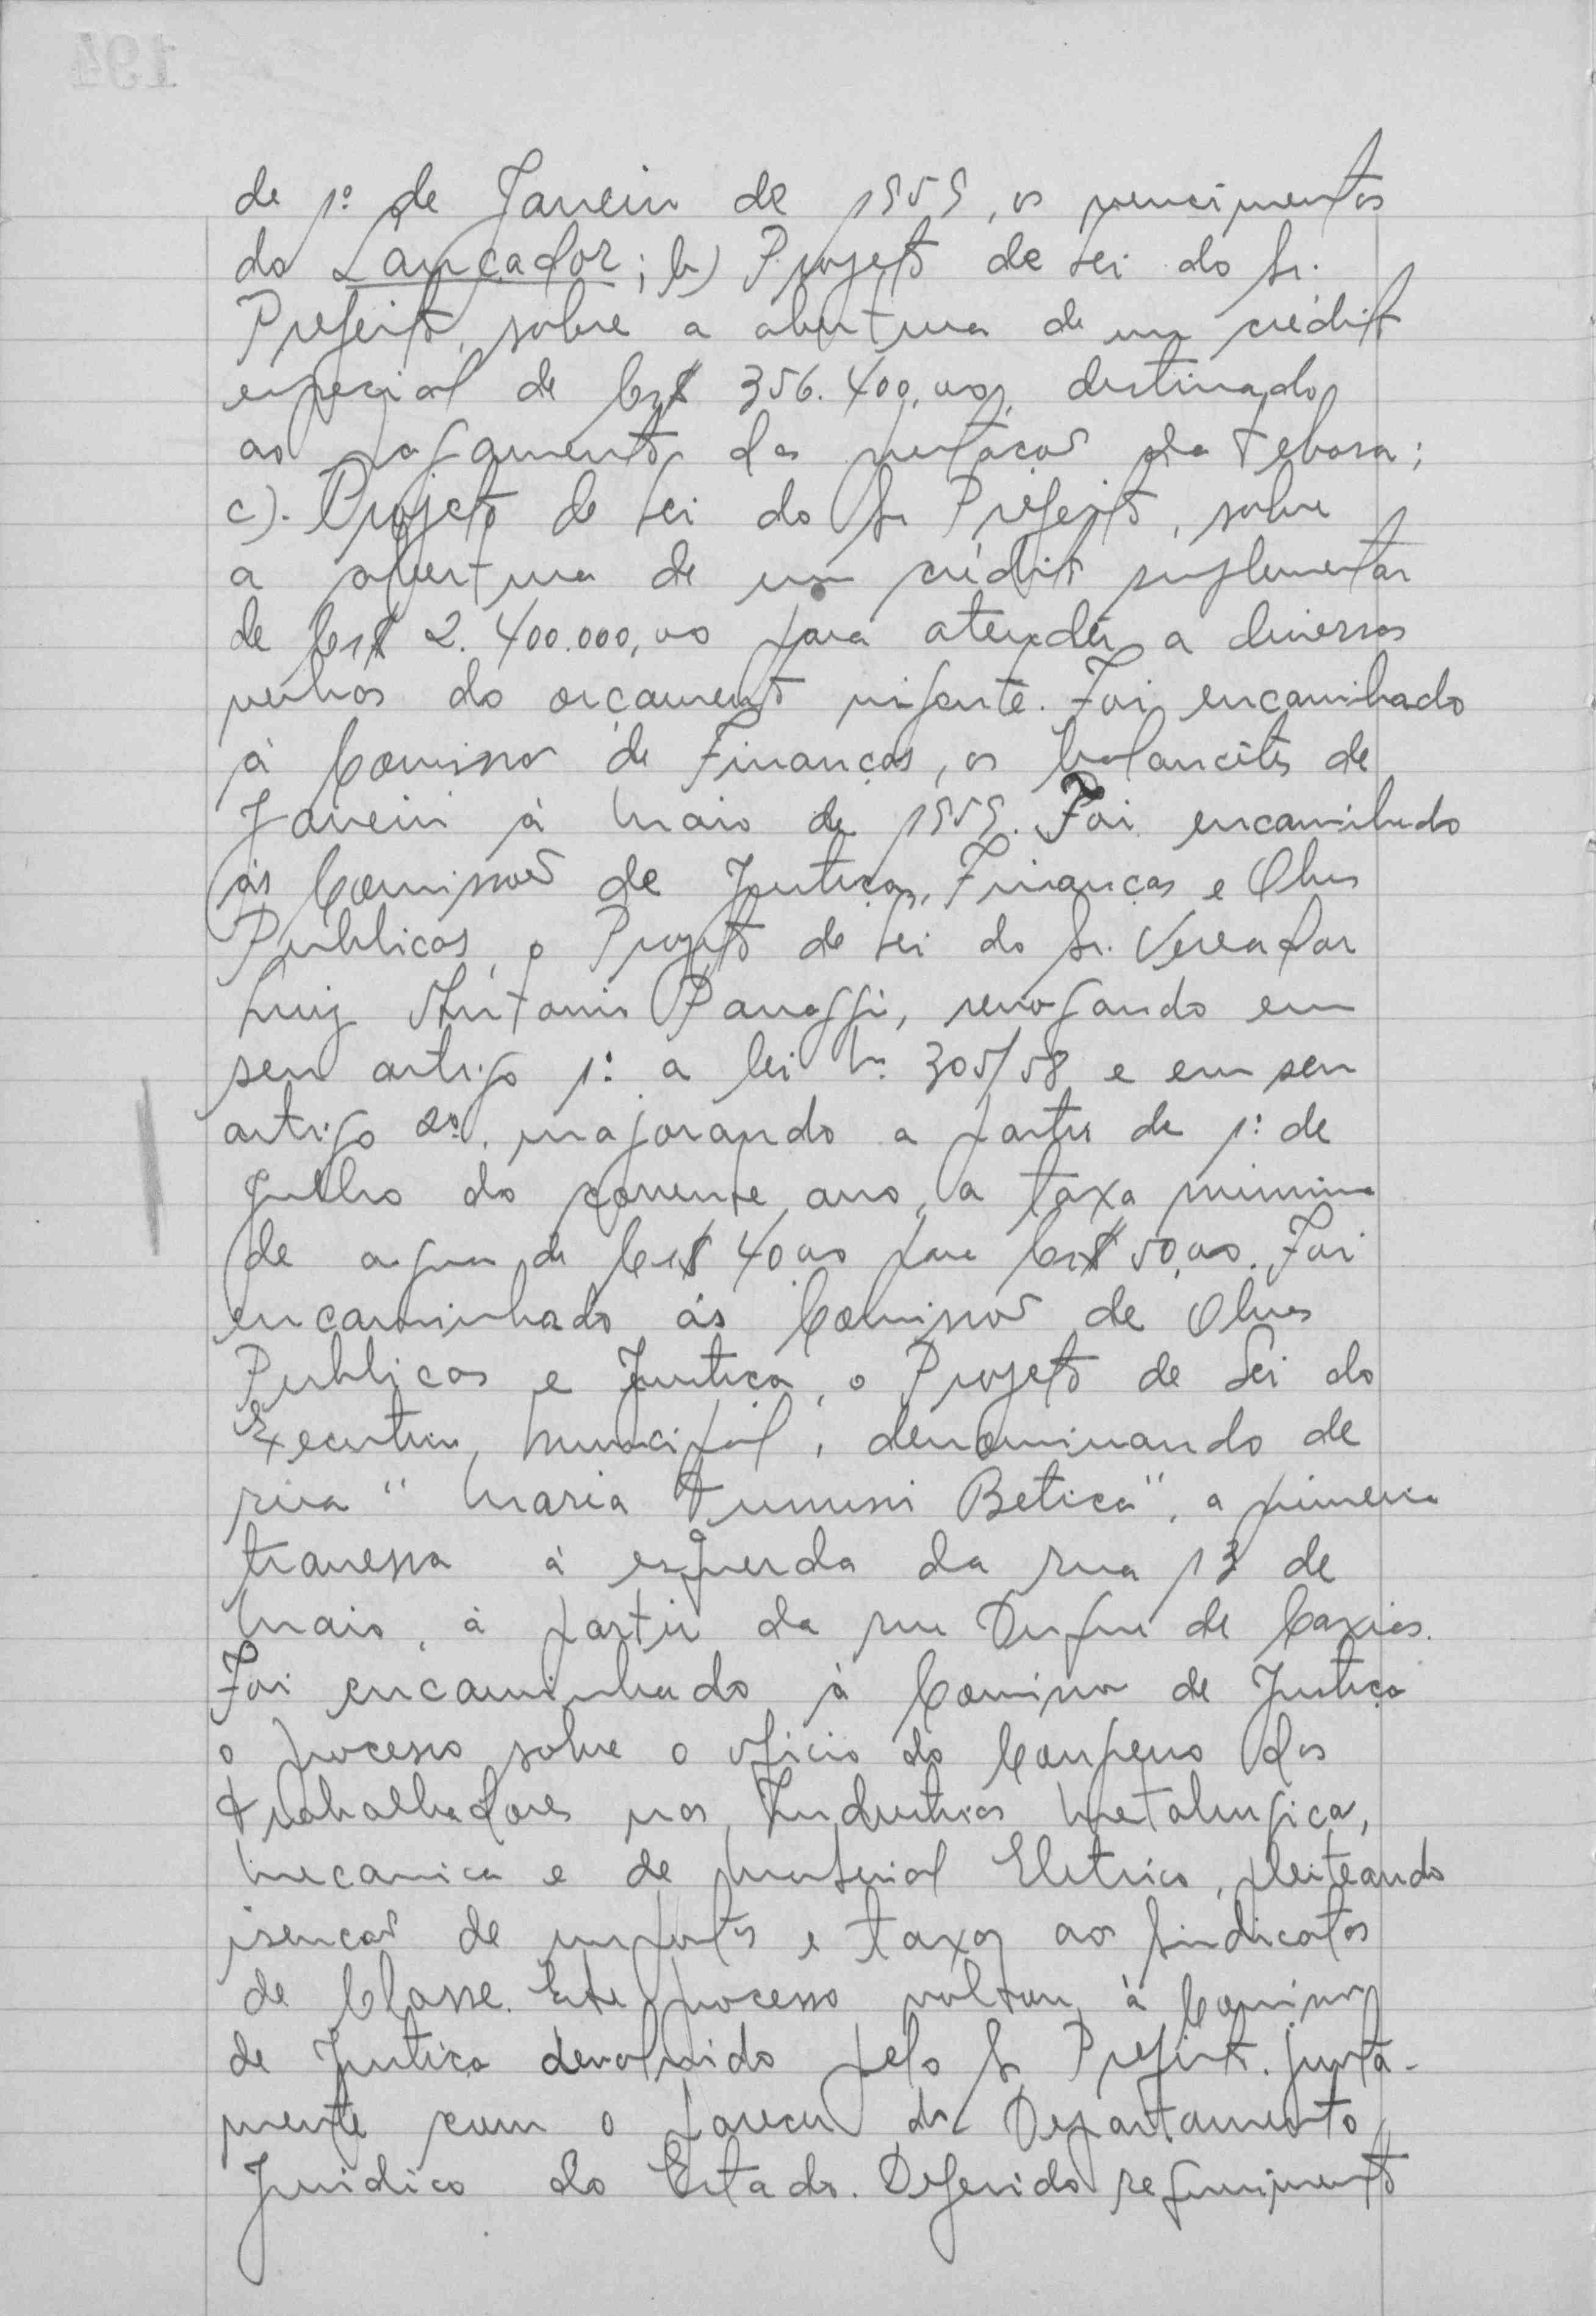 de 1º de Janeiro de 1959, os vencimentos
do Lançador; b) Projeto de Lei do Sr.
Prefeito, sobre a abertura de um crédito
especial de Cr$ 356.400,00, destinado
ao pagamento das prestações da Tebasa;
c). Projeto de Lei do Sr Prefeito, sobre
a abertura de um crédito suplementar
de Cr$ 2.400.000,00 para atender a diversas
verbas do orçamento vigente. Foi encaminhado
à Comissão de Finanças, os balancêtes de
Janeiro à Maio de 1959. Foi encaminhado
às Comissões de Justiça, Finanças e Obras
Publicas, o Projeto de Lei do Sr. Vereador
Luiz Antonio Panaggi, revogando em
seu artigo 1º a lei nº 305/58 e em seu
artigo 2º, majorando a partir de 1º de
Julho do corrente ano, a taxa minima
de agua de Cr$ 40,00 para Cr$ 50,00. Foi
encaminhado ás Comissões de Obras
Publicas e Justiça, o Projeto de Lei do
Executivo Municipal, denominando de
rua "Maria Tumusi Betica", a primeira
travessa à esquerda da rua 13 de
Maio, à partir da rua Duque de Caxias.
Foi encaminhado à Comissão de Justiça
o processo sobre o oficio do Congresso dos
Trabalhadores nas Industrias Metalurgica,
Mecanica e de Material Eletrico, pleiteando
isenção de impostos e taxas aos Sindicatos
de Classe. Este processo voltou à Comissão
de Justiça devolvido pelo Sr Prefeito. junta-
mente com o parecer do Departamento
Juridico do Estado. Deferido requerimento